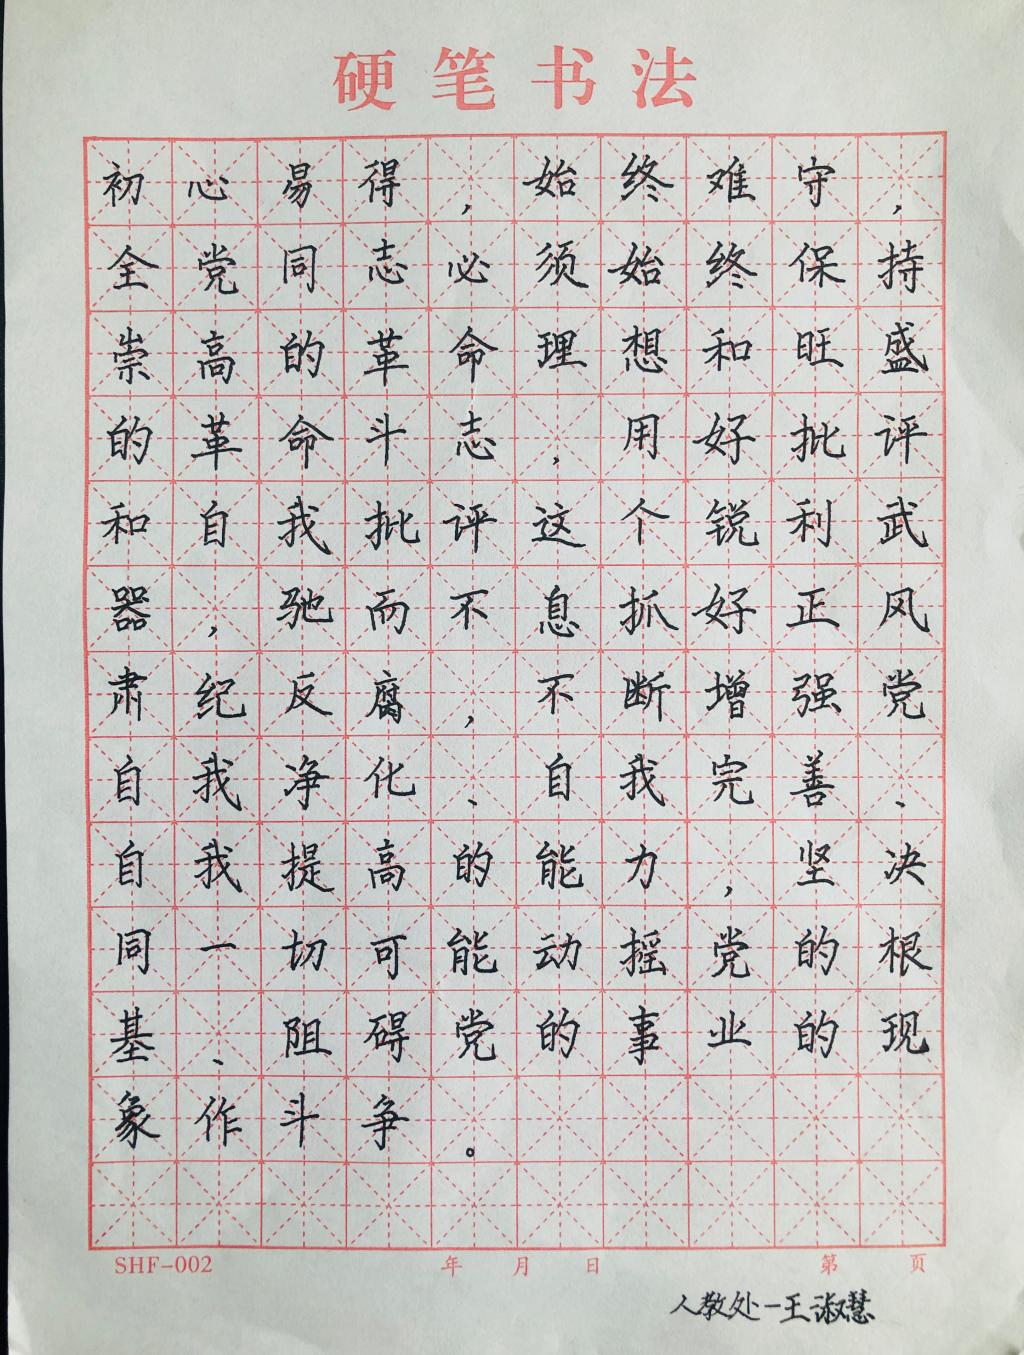 硬笔书法
初心易得，始终难守，
全党同志必须始终保持
崇高的革命理想和旺盛
的革命斗志，用好批评
和自我批评这个锐利武
器，驰而不息抓好正风
肃纪反腐，不断增强党
自我净化、自我完善、
自我提高的能力，坚决
同一切可能动摇党的根
基、阻碍党的事业的现
象作斗争。
SHF-002 年 月 日 第 页
人教处-王淑慧